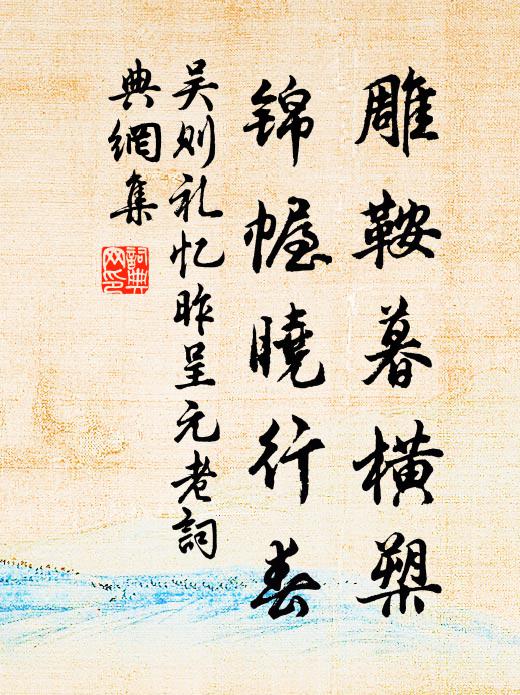 雕鞍暮横槊
锦幄曉行春
吴则礼忆昨呈元老詞
典網集
詞典
网印